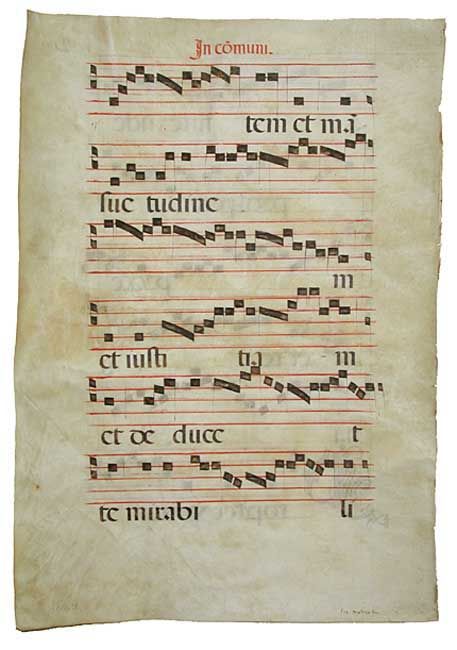 In cōmuni.
tem et mā
sue tudine
m
et iusti tia m
et de ducet t
te mirabi li